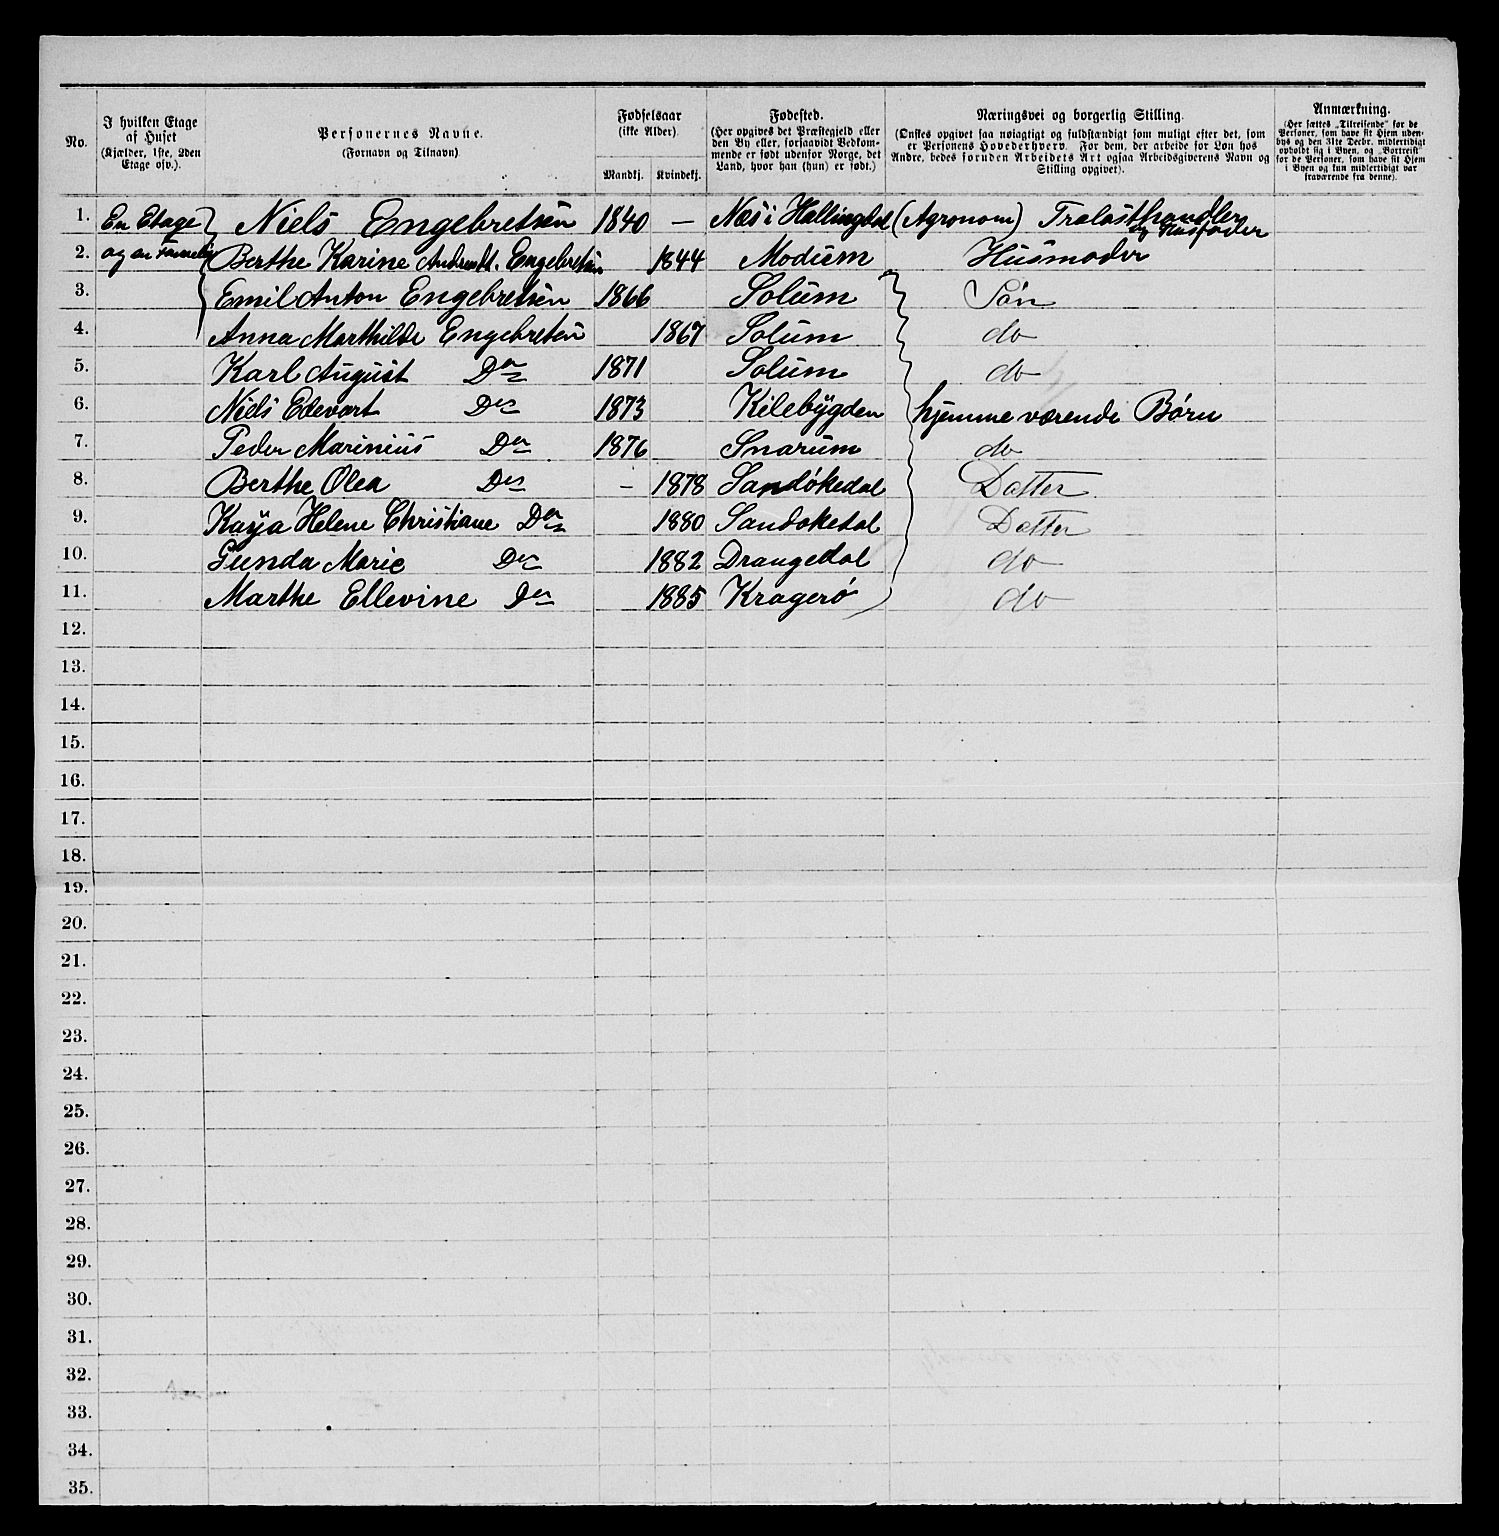 No.
I hvilken Etage af Huset (Kjælder, 1ste, 2den Etage osv.).
Personernes Navne. (Fornavn og Tilnavn)
Fødselsaar (ikke Alder)
Mandkj. Kvindekj.
Fødested. (Her opgives det Præstegjeld eller den By eller, forsaavidt Vedkommende er født udenfor Norge, det Land, hvor han (hun) er født.)
Næringsvei og borgerlig Stilling. (Ønskes opgivet saa nøiagtigt og fuldstændigt som muligt efter det, som er Personens Hovederhverv. For dem, der arbeide for Løn hos Andre, bedes foruden Arbeidets Art ogsaa Arbeidsgiverens Navn og Stilling opgivet).
Anmærkning. (Her sættes „Tilreisende" for de Personer, som have sit Hjem udenbys og den 31te Decbr. midlertidigt opholdt sig i Byen, og „Bortreist" for de Personer, som have sit Hjem i Byen og kun midlertidigt var fraværende fra denne).
1. En Etage Niels Engebretsen 1840 — Næs i Hallingdal (Agronom) Tralasthandler og Husfader
2. og en Familie Berthe Karine Andreasdt. Engebretsen 1844 Modum Husmoder
3. Emil Anton Engebretsen 1866 Solum Søn
4. Anna Marthilde Engebretsen 1867 Solum do
5. Karl August Do 1871 Solum do
6. Niels Edevart Do 1873 Kilebygden hjemmeværende Børn
7. Peder Marinius Do 1876 Snarum do
8. Berthe Olea Do – 1878 Sandøkedal Datter
9. Kaya Helene Christiane Do 1880 Sandøkedal Datter
10. Gunda Marie Do 1882 Drangedal do
11. Marthe Ellevine Do 1885 Kragerø do
12.
13.
14.
15.
16.
17.
18.
19.
20.
21.
22.
23.
24.
25.
26.
27.
28.
29.
30.
31.
32.
33.
34.
35.